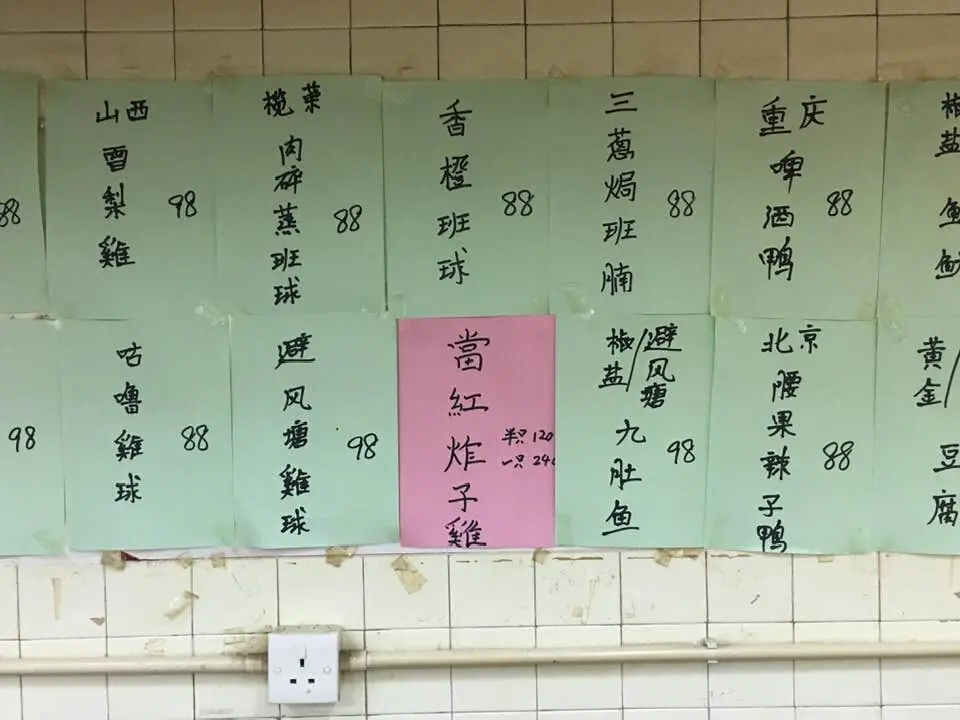 88
山西
雪梨雞
98
榄葉
肉碎蒸班球
88
香橙班球
88
三蔥焗班腩
88
重庆
啤酒鴨
88
椒盐
鱼魷
98
咕嚕雞球
88
避风塘雞球
98
當紅炸子雞
半只 120
一只 240
椒盐/避风塘
九肚鱼
98
北京
腰果辣子鴨
88
黄金/
豆腐